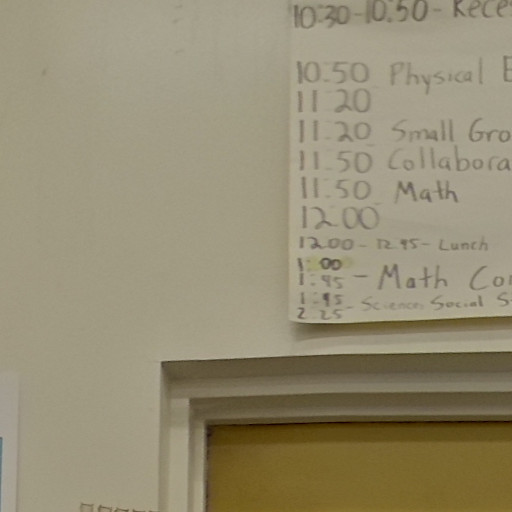 10:30-10:50-Rece
10:50 Physical E
11:20
11:20 Small Gro
11:50 Collabora
11:50 Math
12:00
12:00-12:45-Lunch
1:00
1:45 - Math Co
1:45 - Science, Social S
2:25